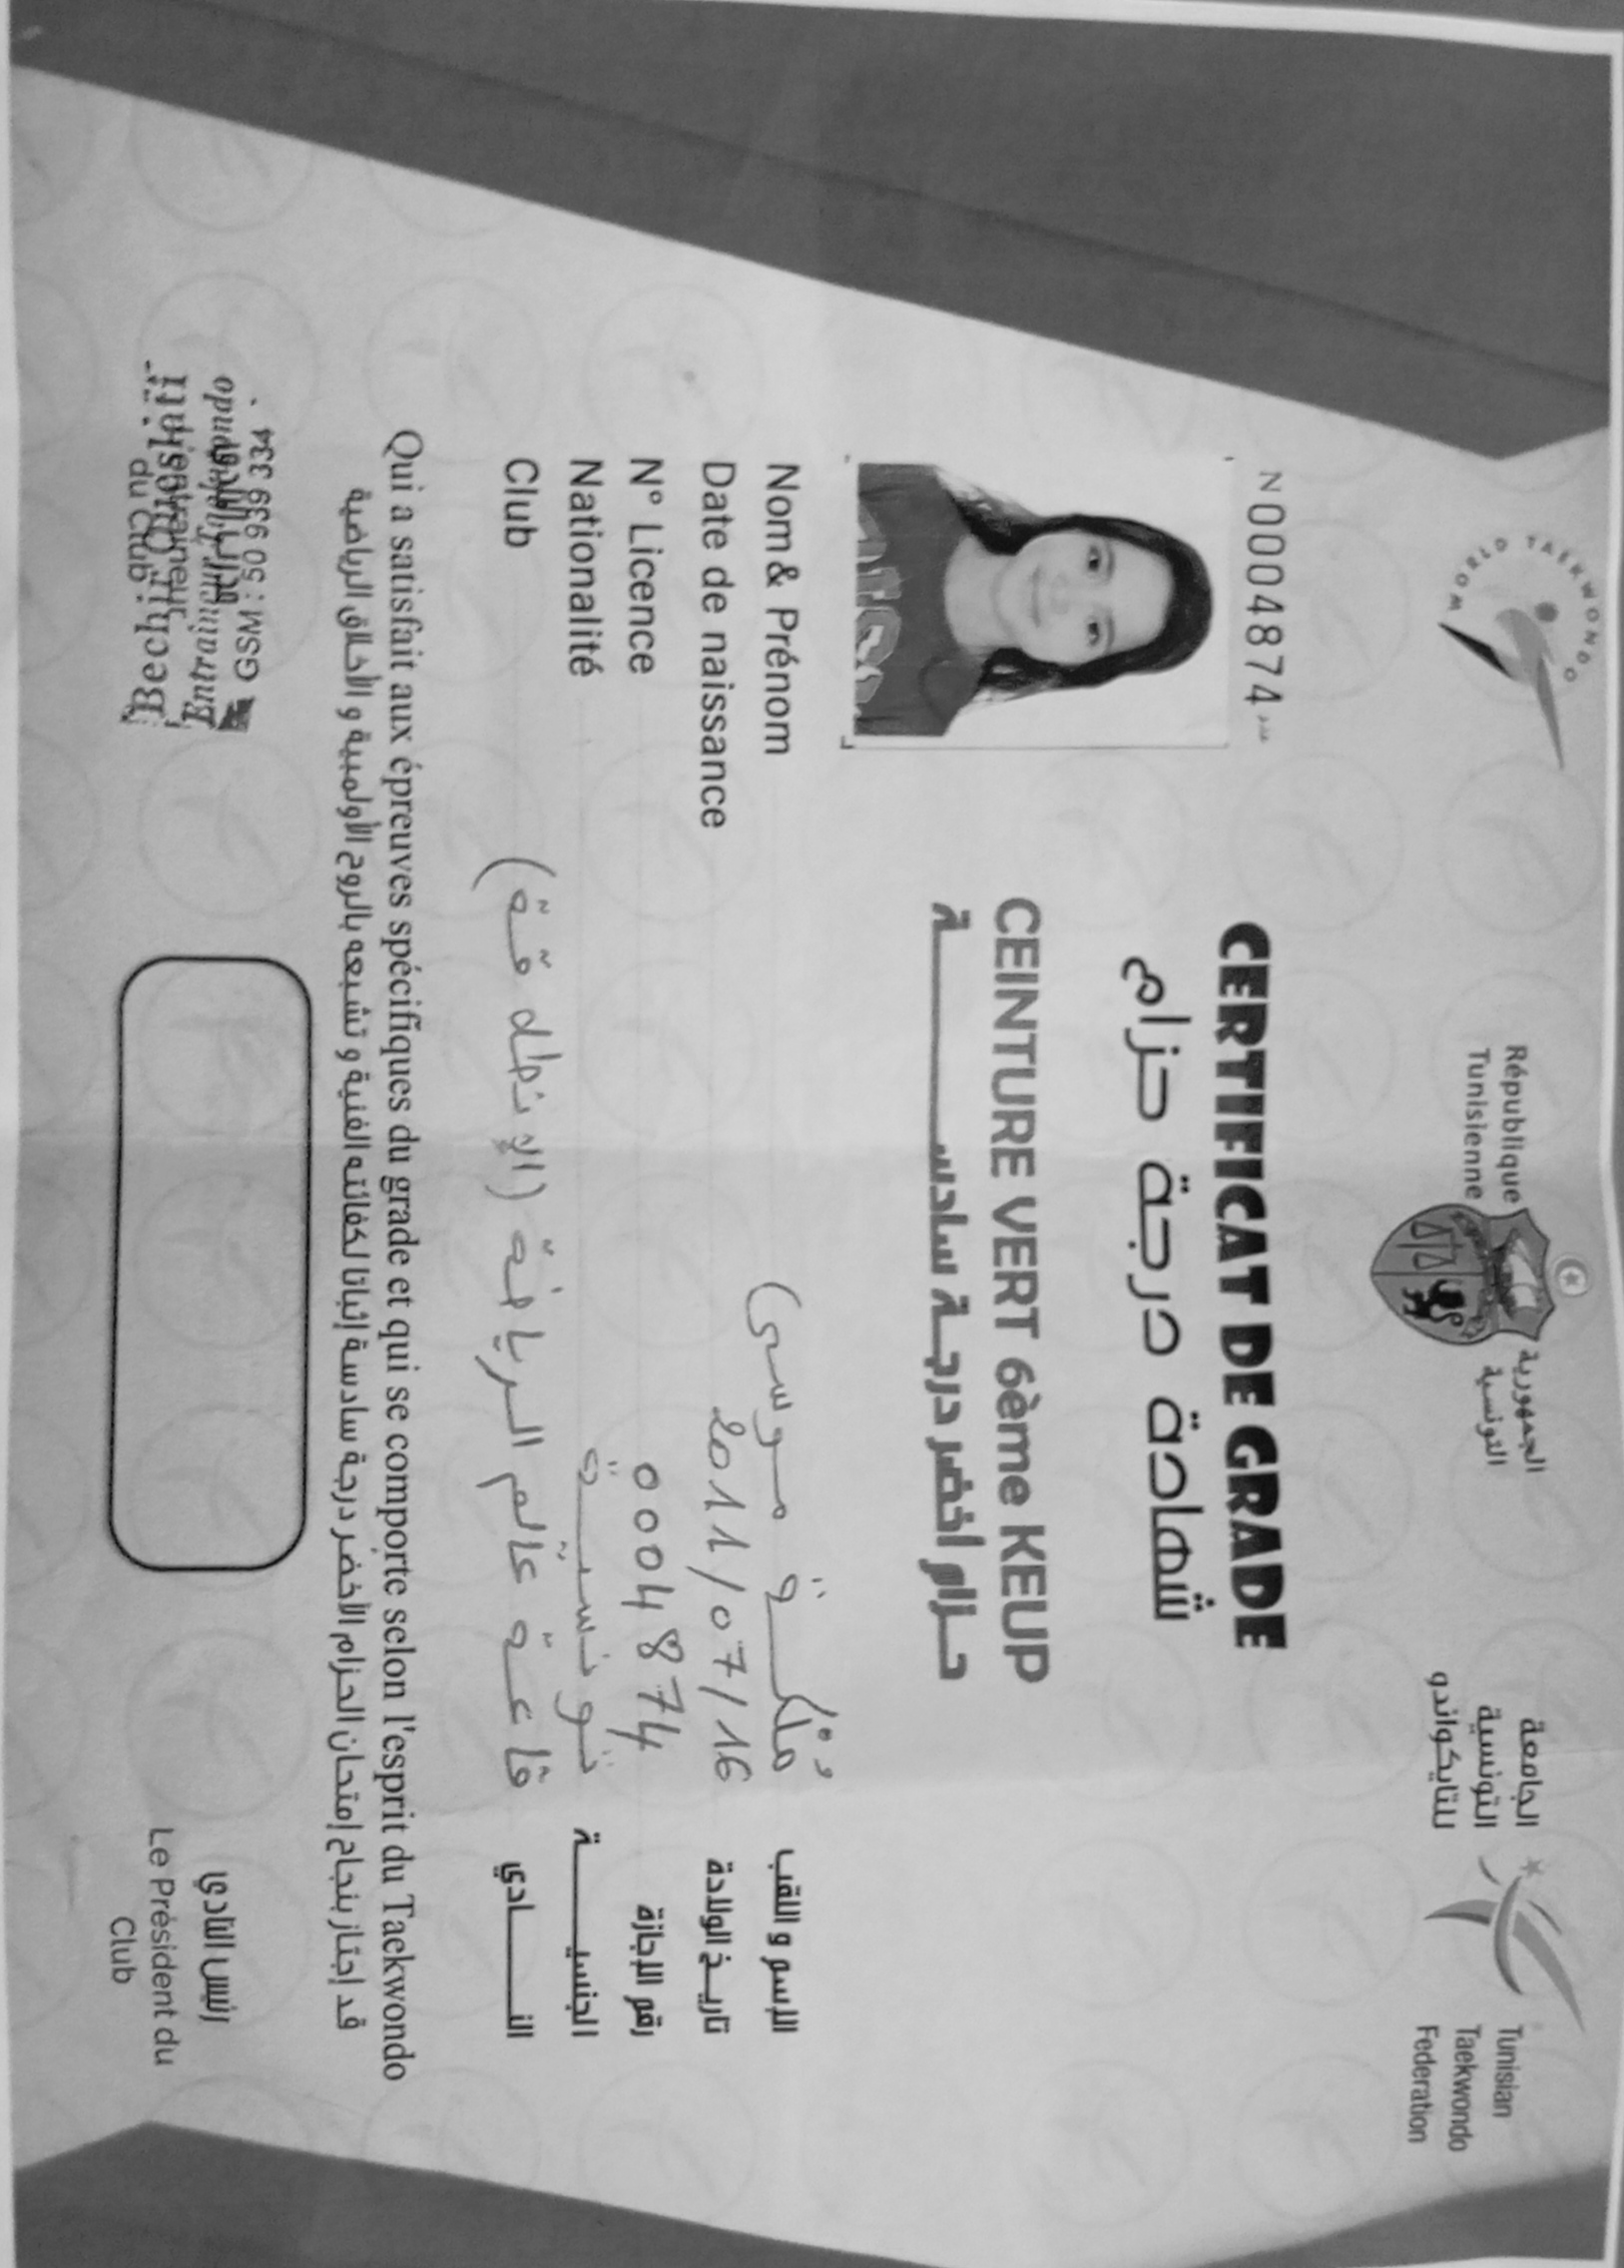 WORLD TAEKWONDO
République
Tunisienne
الجمهورية
التونسية
الجامعة
التونسية
للتايكواندو
Tunisian
Taekwondo
Federation
N 00048 74 عدد
CERTIFICAT DE GRADE
شهادة درجة حزام
CEINTURE VERT 6ème KEUP
حزام اخضر درجة سادسة
Nom & Prénom ملكة موسى الإسم و اللقب
Date de naissance 2011/07/16 تاريخ الولادة
N° Licence 0004874 رقم الإجازة
Nationalité تونسية الجنسية
Club قاعة عالم الرياضة النادي
Qui a satisfait aux épreuves spécifiques du grade et qui se comporte selon l'esprit du Taekwondo
قد إجتاز بنجاح إمتحان الحزام الأخضر درجة سادسة إثباتا لكفائته الفنية و تشبعه بالروح الأولمبية و الأخلاق الرياضية
GSM : 50 939 334
du Club
رئيس النادي
Le Président du
Club